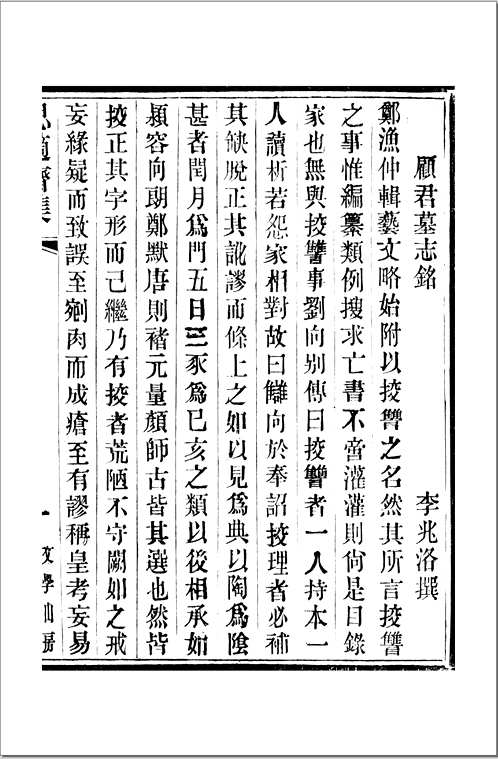 顧君墓志銘　李兆洛撰
鄭漁仲輯藝文略始附以挍讐之名然其所言挍讐
之事惟編纂類例搜求亡書不啻灌灌則尙是目錄
家也無與挍讐事劉向別傳曰挍讐者一人持本一
人讀析若怨家相對故曰讎向於奉詔挍理者必補
其缺脫正其訛謬而條上之如以見爲典以陶爲陰
甚者閏月爲門五日三豕爲已亥之類以後相承如
潁容向朗鄭默唐則褚元量顏師古皆其選也然皆
挍正其字形而已繼乃有挍者荒陋不守闕如之戒
妄緣疑而致誤至剜肉而成瘡至有謬稱皇考妄易
思適齋集　一　文學山房